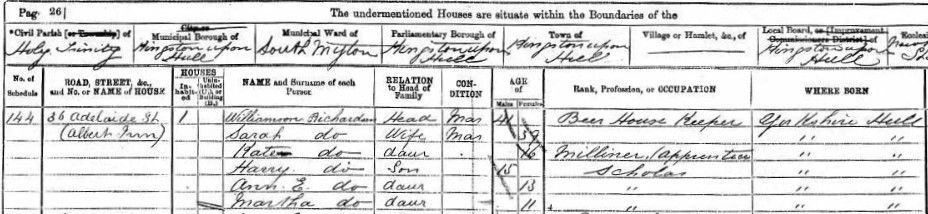 Page 26] The undermentioned Houses are situate within the Boundaries of the
*Civil Parish [or Township] of City or Municipal Borough of Municipal Ward of Parliamentary Borough of Town of Village or Hamlet, &c., of Local Board, or [Improvement Commissioners District] of
Holy Trinity Kingston upon Hull South Myton Kingston upon Hull Kingston upon Hull Kingston upon Hull
No. of Schedule ROAD, STREET, &c., and No. or NAME of HOUSE HOUSES In-habit-ed Unin-habited (U.), or Building (B.) NAME and Surname of each Person RELATION to Head of Family CON-DITION AGE of Males Females Rank, Profession, or OCCUPATION WHERE BORN
144 36 Adelaide St 1 Williamson Richardson Head Mar 41 Beer House Keeper Yorkshire Hull
(Albert Inn) Sarah do Wife Mar 39 " "
Kate do daur 16 Milliner (apprentice " "
Harry do Son 15 Scholar " "
Ann E. do daur 13 " " "
Martha do daur 11 " " "